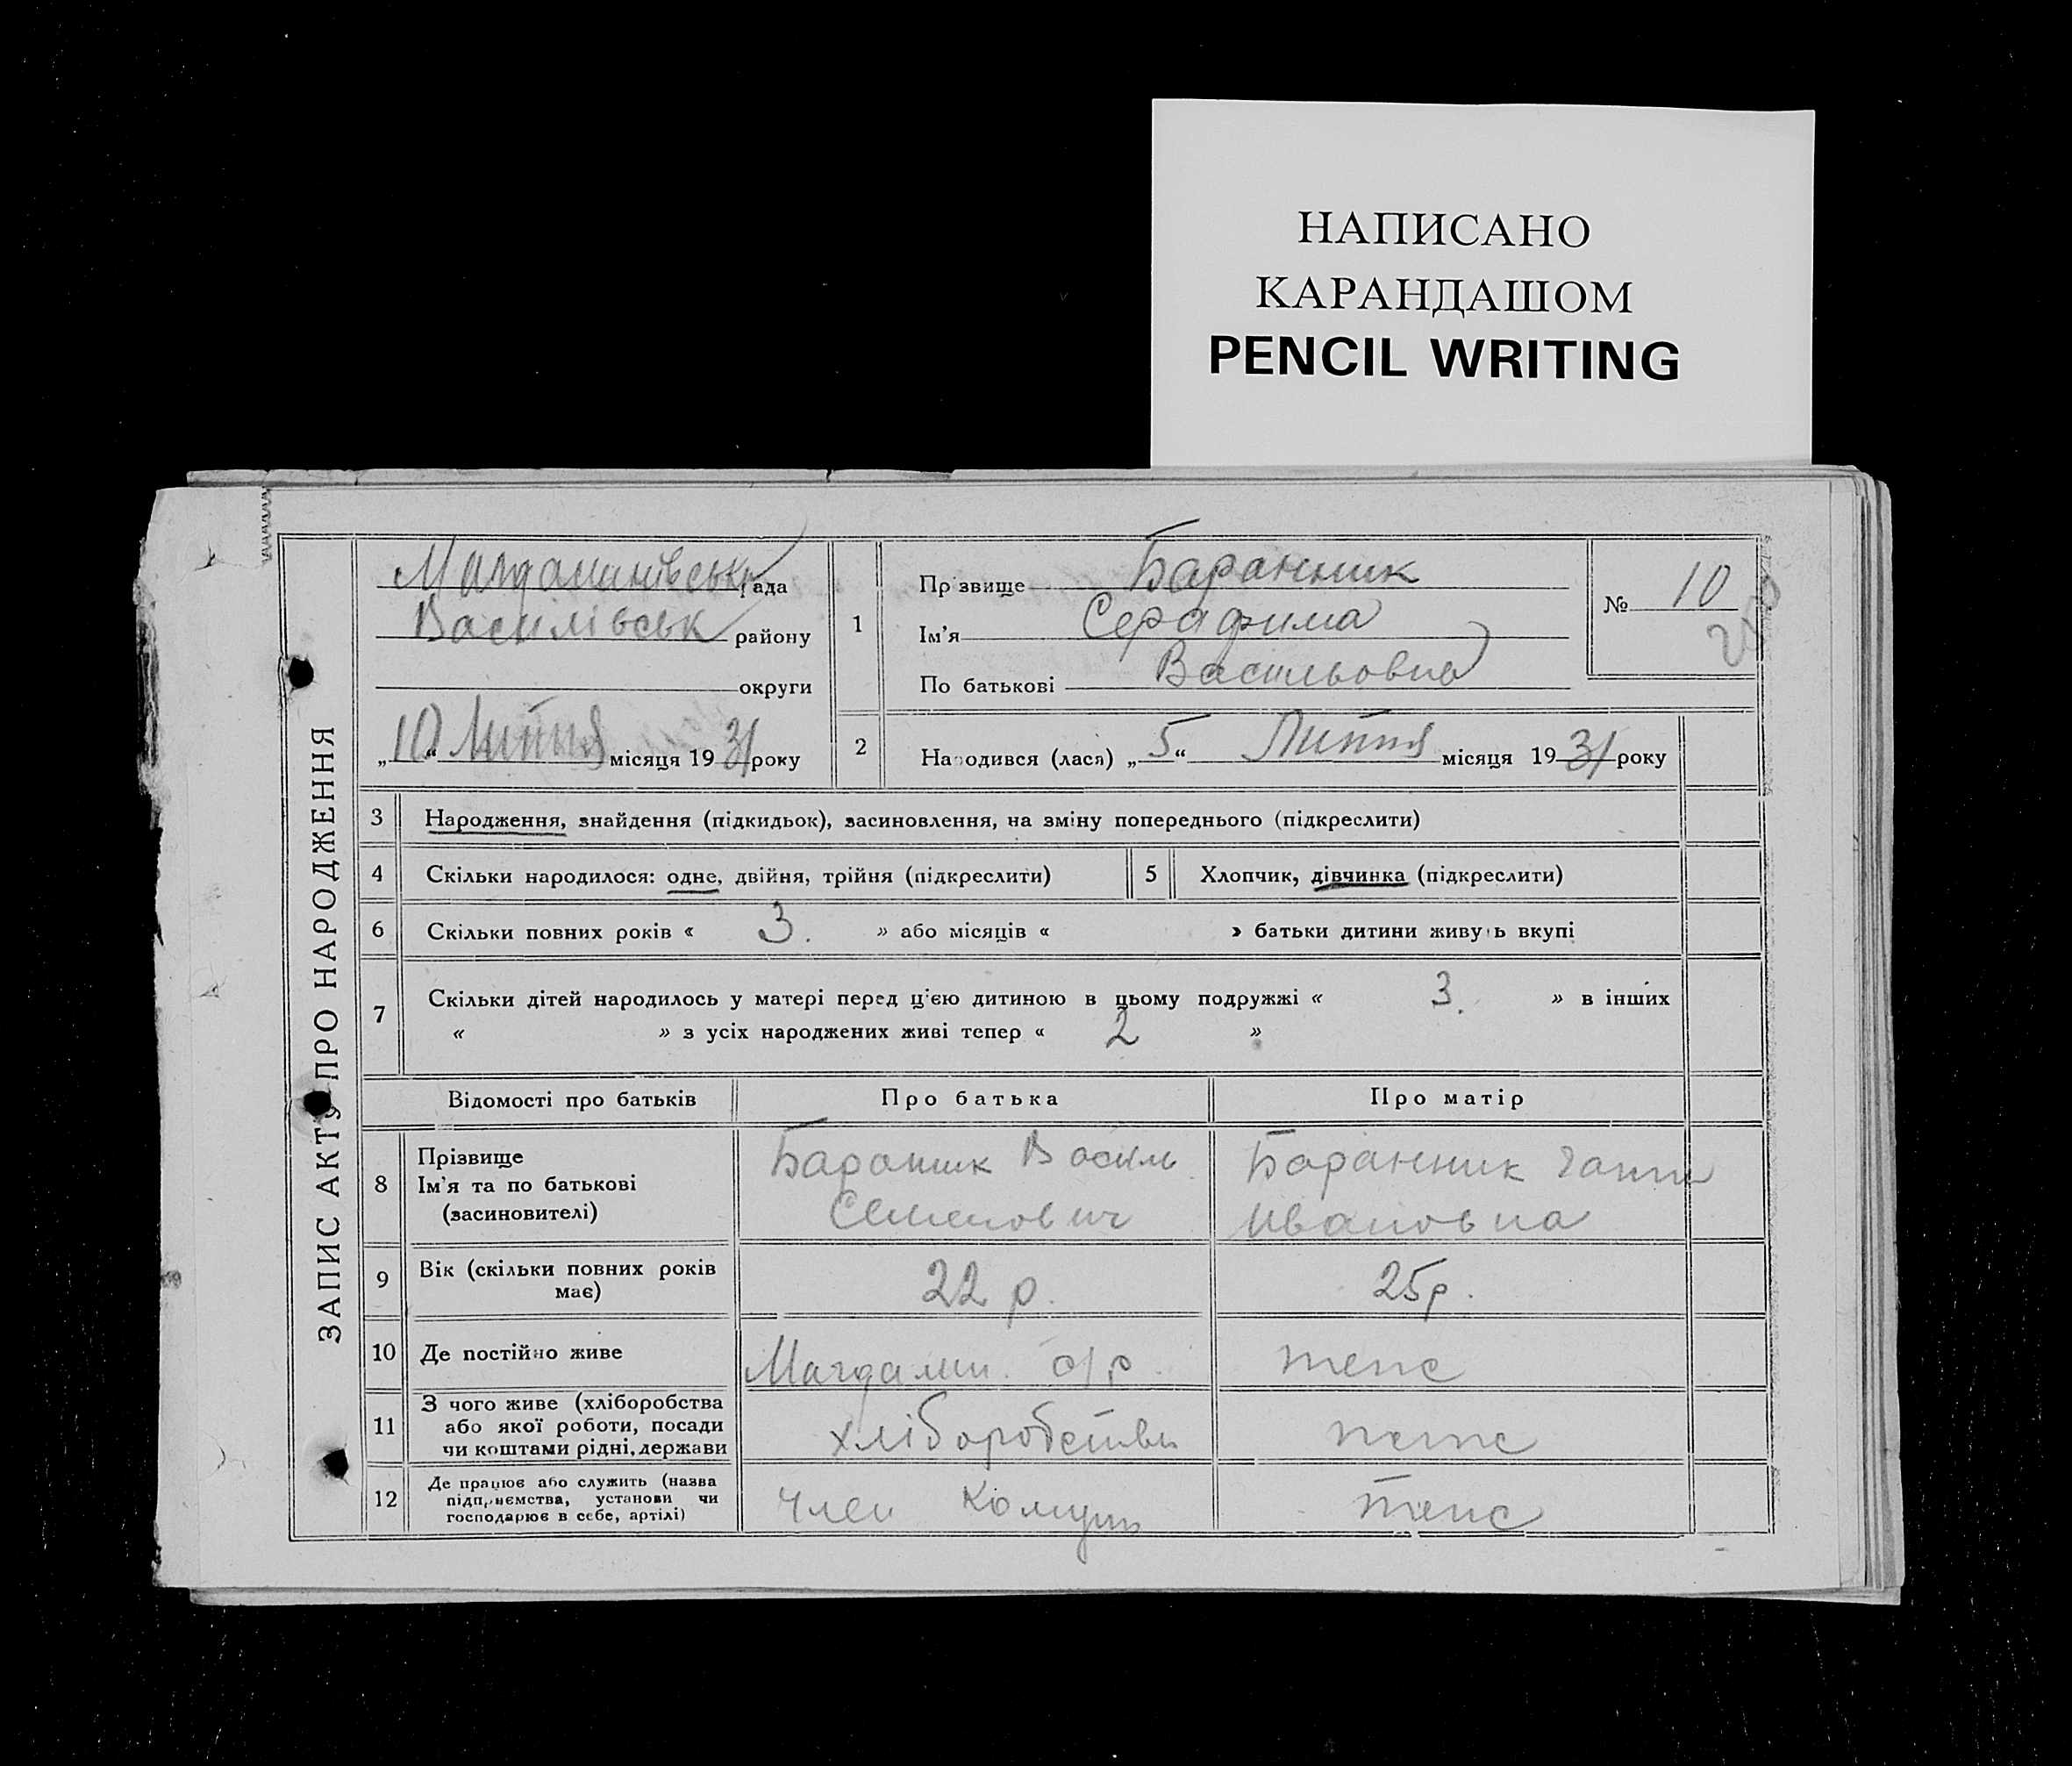 НАПИСАНО
КАРАНДАШОМ
PENCIL WRITING
ЗАПИС АКТУ ПРО НАРОДЖЕННЯ
рада
Василівськ району
округи
„10“ Липня місяця 1931 року
1
Прізвище Баранник
Ім'я Серафима
По батькові Васильовна
№ 10
2 Народився (лася) „5“ Липня місяця 1931 року
3 Народження, знайдення (підкидьок), засиновлення, на зміну попереднього (підкреслити)
4 Скільки народилося: одне, двійня, трійня (підкреслити) 5 Хлопчик, дівчинка (підкреслити)
6 Скільки повних років « 3. » або місяців « » батьки дитини живуть вкупі
7 Скільки дітей народилось у матері перед ц'єю дитиною в цьому подружжі « 3. » в інших
« » з усіх народжених живі тепер « 2 »
Відомості про батьків Про батька Про матір
8 Прізвище
Ім'я та по батькові
(засиновителі)
Бараник Василь
Семенович
Баранник
Ивановна
9 Вік (скільки повних років
має)
22 р. 25 р.
10 Де постійно живе с/р теж
11 З чого живе (хліборобства
або якої роботи, посади
чи коштами рідні, держави
хліборобства
12 Де працює або служить (назва
підприємства, установи чи
господарює в себе, артілі)
член Комуни